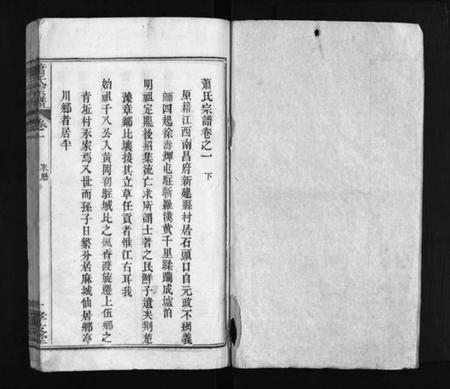 蕭氏宗譜卷之一 下
原籍江西南昌府新建縣村居石頭口自元政不綱義
師四起徐壽輝屯駐蘄羅漢黃千里蹂躪成墟泊
明祖定鼎後招集流亡求所謂土著之民鮮孑遺矣荆楚
豫章鄰比壤接其立草任貢者惟江右耳我
始祖千八公入黃岡朝駐城北之楓香渡旋遷上伍鄉之
青坵村永家焉又世而孫子日繁分居麻城仙居鄉亭
川鄉者居半
卷一